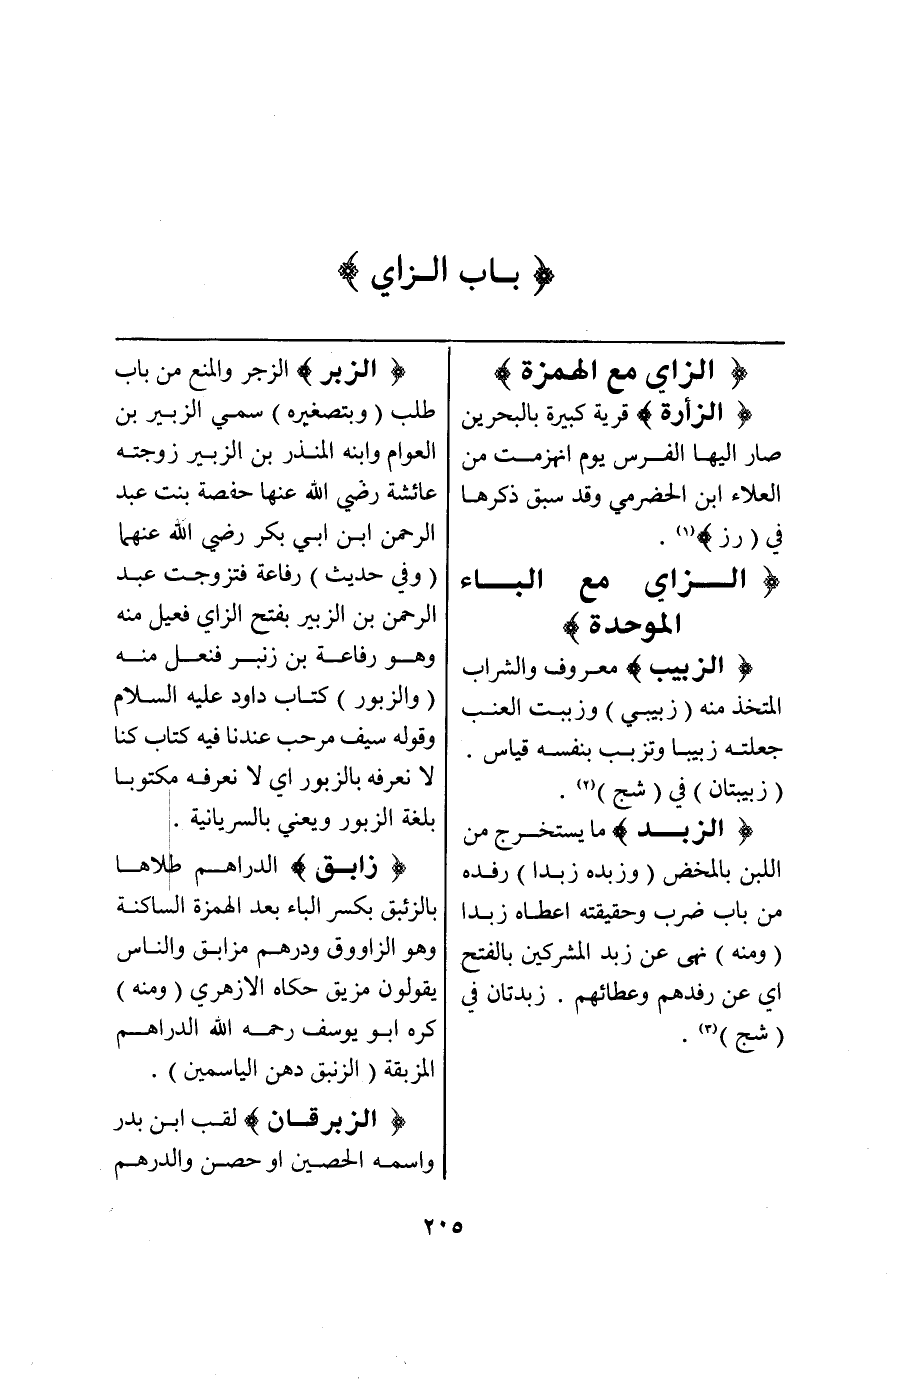 ﴿ بـاب الـزاي ﴾
﴿ الزاي مع الهمزة ﴾
﴿ الزأرة ﴾ قرية كبيرة بالبحرين
صار اليها الفرس يوم انهزمت من
العلاء ابن الحضرمي وقد سبق ذكرها
في ( رز ﴾(١) .
﴿ الــزاي مع البــاء
الموحدة ﴾
﴿ الزبيب ﴾ معروف والشراب
المتخذ منه ( زبيبي ) وزببت العنب
جعلته زبيبا وتزبب بنفسه قياس .
( زبيبتان ) في ( شج )(٢) .
﴿ الزبـد ﴾ ما يستخرج من
اللبن بالمخض ( وزبده زبدا ) رفده
من باب ضرب وحقيقته اعطاه زبدا
( ومنه ) نهى عن زبد المشركين بالفتح
اي عن رفدهم وعطائهم . زبدتان في
( شج )(٣) .
﴿ الزبر ﴾ الزجر والمنع من باب
طلب ( وبتصغيره ) سمي الزبير بن
العوام وابنه المنذر بن الزبير زوجته
عائشة رضي الله عنها حفصة بنت عبد
الرحمن ابن ابي بكر رضي الله عنهما
( وفي حديث ) رفاعة فتزوجت عبد
الرحمن بن الزبير بفتح الزاي فعيل منه
وهـو رفاعـة بن زنبـر فنعـل منـه
( والزبور ) كتاب داود عليه السلام
وقوله سيف مرحب عندنا فيه كتاب كنا
لا نعرفه بالزبور اي لا نعرفه مكتوبا
بلغة الزبور ويعني بالسريانية .
﴿ زابـق ﴾ الدراهـم طلاهـا
بالزئبق بكسر الباء بعد الهمزة الساكنة
وهو الزاووق ودرهم مزابق والناس
يقولون مزبق حكاه الازهري ( ومنه )
كره ابو يوسف رحمه الله الدراهم
المزبقة ( الزنبق دهن الياسمين ) .
﴿ الزبرقـان ﴾ لقب ابن بدر
واسمه الحصين او حصن والدرهم
٢٠٥